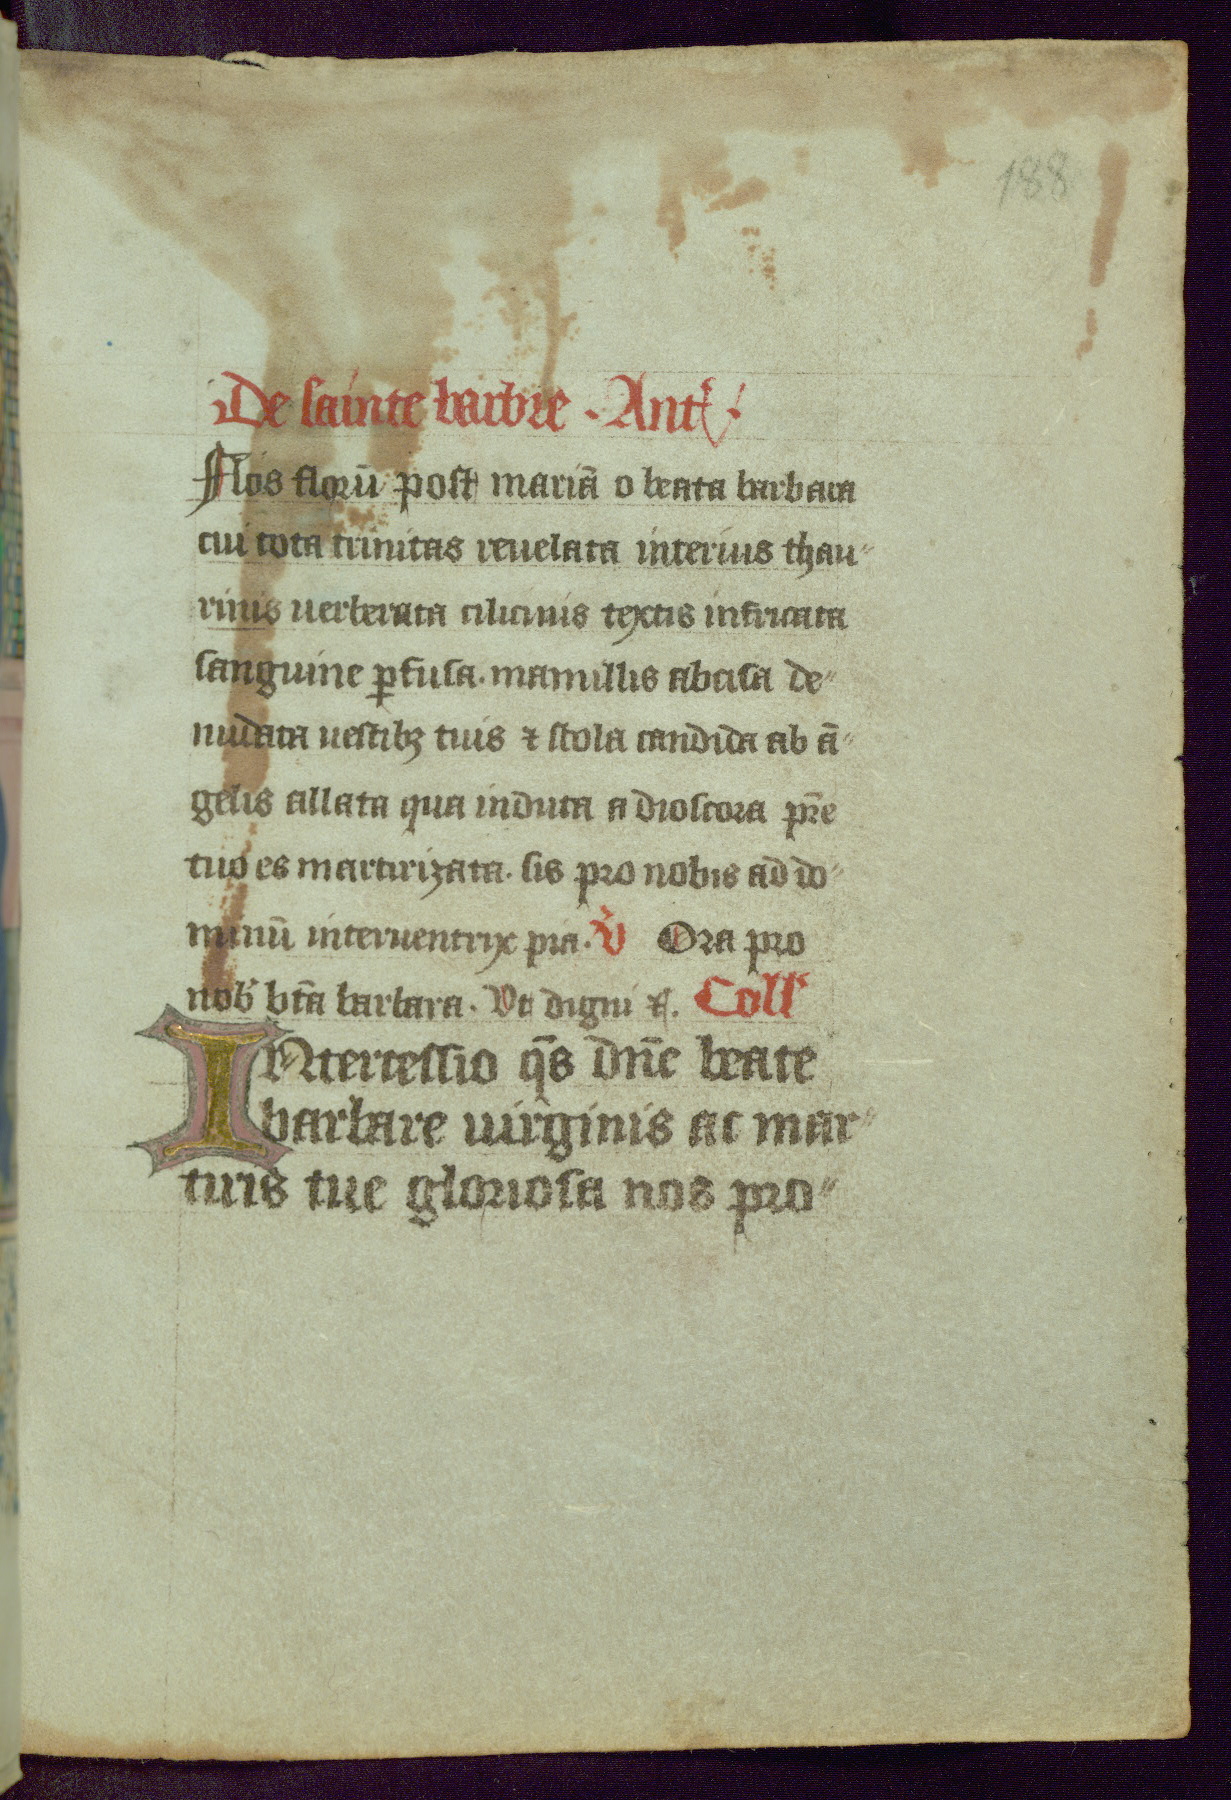 188
De sainte barbre . Ant' .
Flos florū post mariā o beata barbara
cui tota trinitas reuelata interius thau
rinis uerberata cilicinis textis infricata
sanguine ꝑfusa . mamillis abcisa de
nudata uestibꝫ tuis ⁊ stola candida ab ā
gelis allata qua induta a dioscora pr̄e
tuo es martirizata . sis pro nobis ad do
minū interuentrix pia . V̄ Ora pro
nob̄ bt̄a barbara . Vt digni ⁊c̄ . Coll'
INtercessio q̄s dn̄e beate
barbare uirginis ac mar
tiris tue gloriosa nos pro